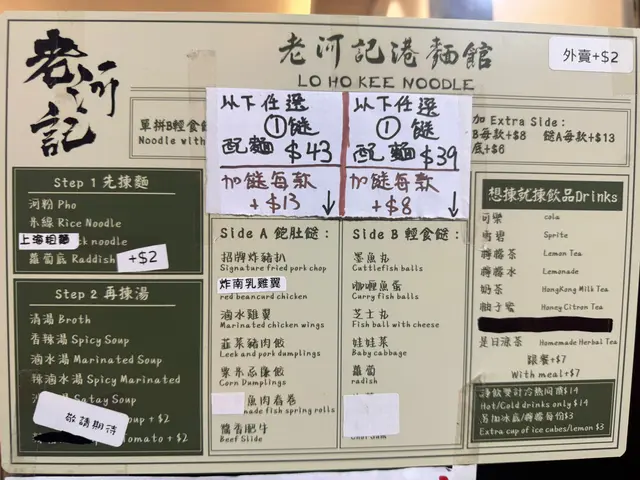 老河記
老河記港麵館
LO HO KEE NOODLE
外賣+$2
單拼B輕食
Noodle with
以下任選
①餸
配麵 $43
加餸每款
+$13
以下任選
①餸
配麵 $39
加餸每款
+$8
加 Extra Side:
B每款+$8 餸A每款+$13
底+$6
Step 1 先揀麵
河粉 Pho
米線 Rice Noodle
上海粗麵 k noodle
蘿蔔底 Raddish
+$2
Step 2 再揀湯
清湯 Broth
香辣湯 Spicy Soup
滷水湯 Marinated Soup
辣滷水湯 Spicy Marinated
湯 Satay Soup
敬請期待
oup + $2
omato + $2
Side A 飽肚餸:
招牌炸豬扒
Signature fried pork chop
炸南乳雞翼
red beancurd chicken
滷水雞翼
Marinated chicken wings
韮菜豬肉餃
Leek and pork dumplings
粟米忌廉餃
Corn Dumplings
魚肉春卷
made fish spring rolls
醬香肥牛
Beef Slide
Side B 輕食餸:
墨魚丸
Cuttlefish balls
咖喱魚蛋
Carry fish balls
芝士丸
Fish ball with cheese
娃娃菜
Baby cabbage
蘿蔔
radish
想揀就揀飲品Drinks
可樂 cola
雪碧 Sprite
檸檬茶 Lemon Tea
檸檬冰 Lemonade
奶茶 HongKong Milk Tea
柚子蜜 Honey Citron Tea
是日涼茶 Homemade Herbal Tea
跟餐+$7
With meal+$7
淨飲要計冷熱同價$14
Hot/Cold drinks only $14
加冰底/檸檬每份$3
Extra cup of ice cabes/lemon $3